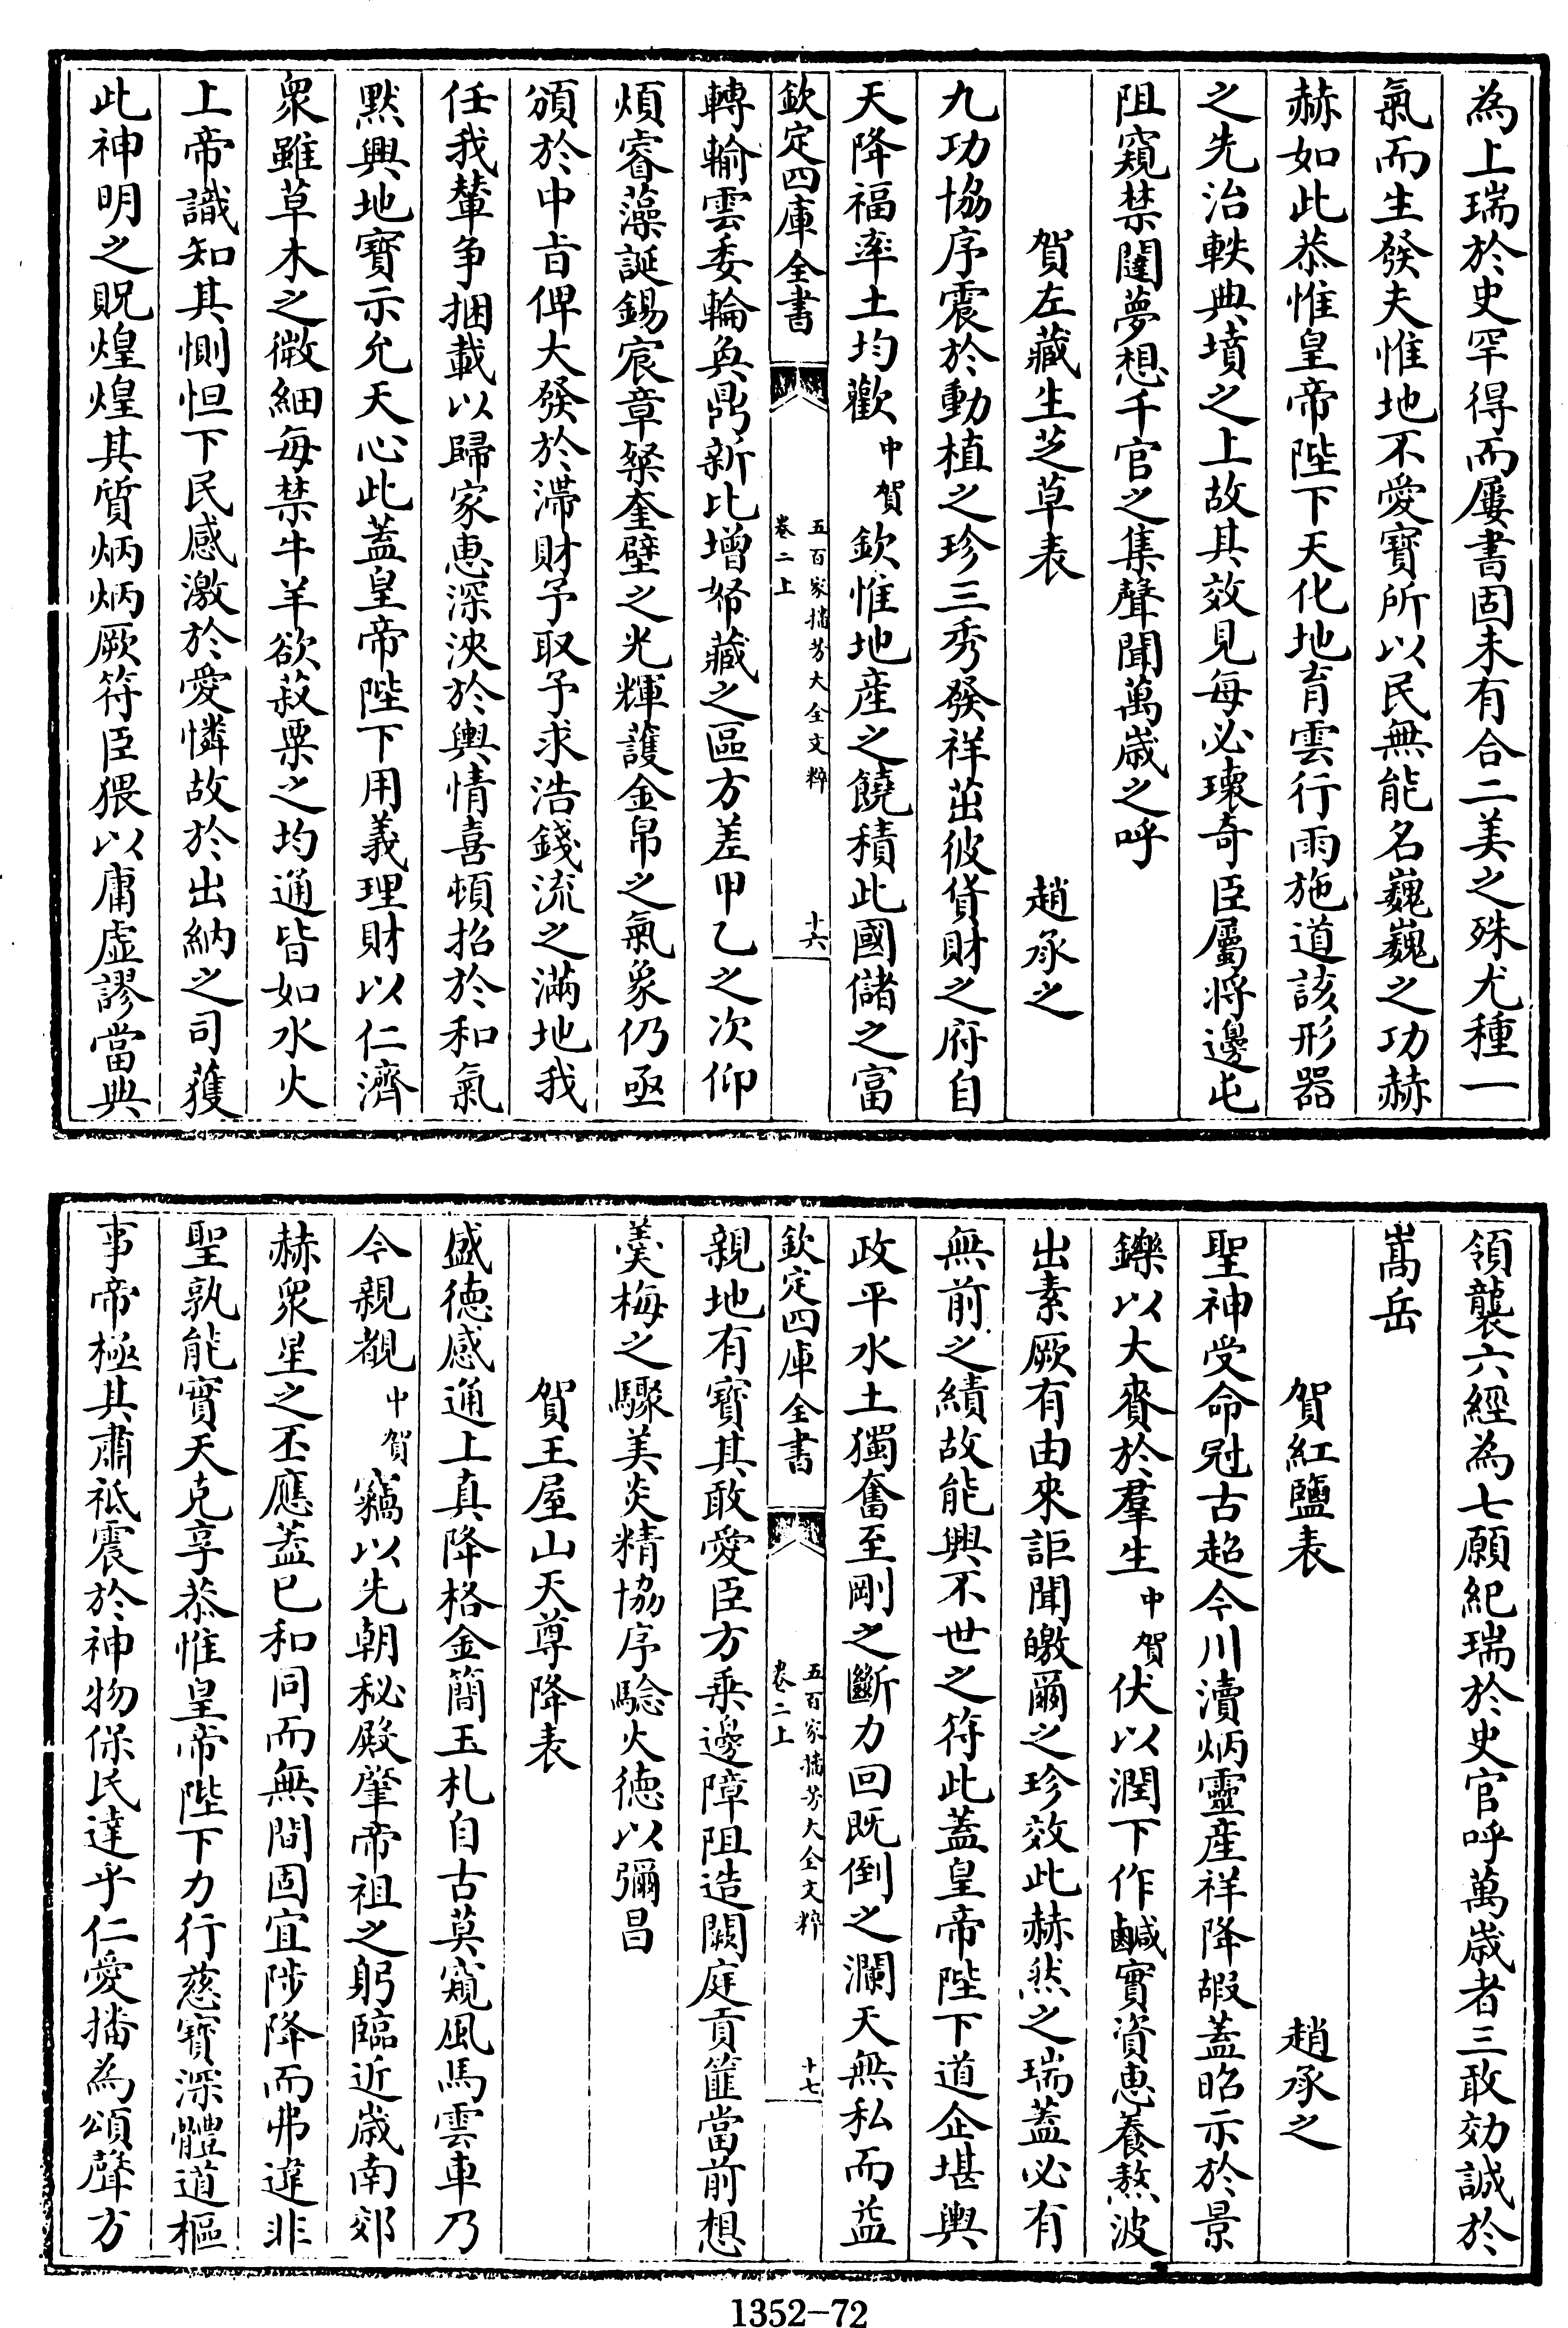 為上瑞於史罕得而屢書固未有合二美之殊尤種一
氣而生發夫惟地不愛寶所以民無能名巍巍之功赫
赫如此恭惟皇帝陛下天化地育雲行雨施道該形器
之先治軼典墳之上故其效見每必瓌奇臣屬將邊屯
阻窺禁闥夢想千官之集聲聞萬歲之呼
賀左藏生芝草表 趙承之
九功協序震於動植之珍三秀發祥茁彼貨財之府自
天降福率土均歡中賀欽惟地産之饒積此國儲之富
欽定四庫全書 五百家播芳大全文粹 卷二上 十六
轉輸雲委輪奐鼎新比增帑藏之區方差甲乙之次仰
煩睿藻誕錫宸章粲奎壁之光輝護金帛之氣象仍亟
頒於中㫖俾大發於滯財予取予求浩錢流之滿地我
任我輦争捆載以歸家恵深浹於輿情喜頓招於和氣
黙興地寶示允天心此蓋皇帝陛下用義理財以仁濟
衆雖草木之微細每禁牛羊欲菽粟之均通皆如水火
上帝識知其惻怛下民感激於愛憐故於出納之司獲
此神明之貺煌煌其質炳炳厥符臣猥以庸虚謬當典
領襲六經為七願紀瑞於史官呼萬歲者三敢効誠於
嵩岳
賀紅鹽表 趙承之
聖神受命冠古超今川瀆炳靈産祥降嘏蓋昭示於景
鑠以大賚於羣生中賀伏以潤下作鹹實資恵養熬波
出素厥有由來詎聞皦爾之珍效此赫然之瑞蓋必有
無前之績故能興不世之符此蓋皇帝陛下道企堪輿
政平水土獨奮至剛之斷力回既倒之瀾天無私而益
欽定四庫全書 五百家播芳大全文粹 卷二上 十七
親地有寶其敢愛臣方乗邊障阻造闕庭貢篚當前想
羮梅之驟美炎精協序騐火徳以彌昌
賀王屋山天尊降表
盛徳感通上真降格金簡玉札自古莫窺風馬雲車乃
今親覩中賀竊以先朝秘殿肇帝祖之躬臨近歲南郊
赫衆星之丕應蓋已和同而無間固宜陟降而弗違非
聖孰能實天克享恭惟皇帝陛下力行慈寶深體道樞
事帝極其肅祗震於神物保民達乎仁愛播為頌聲方
1352-72